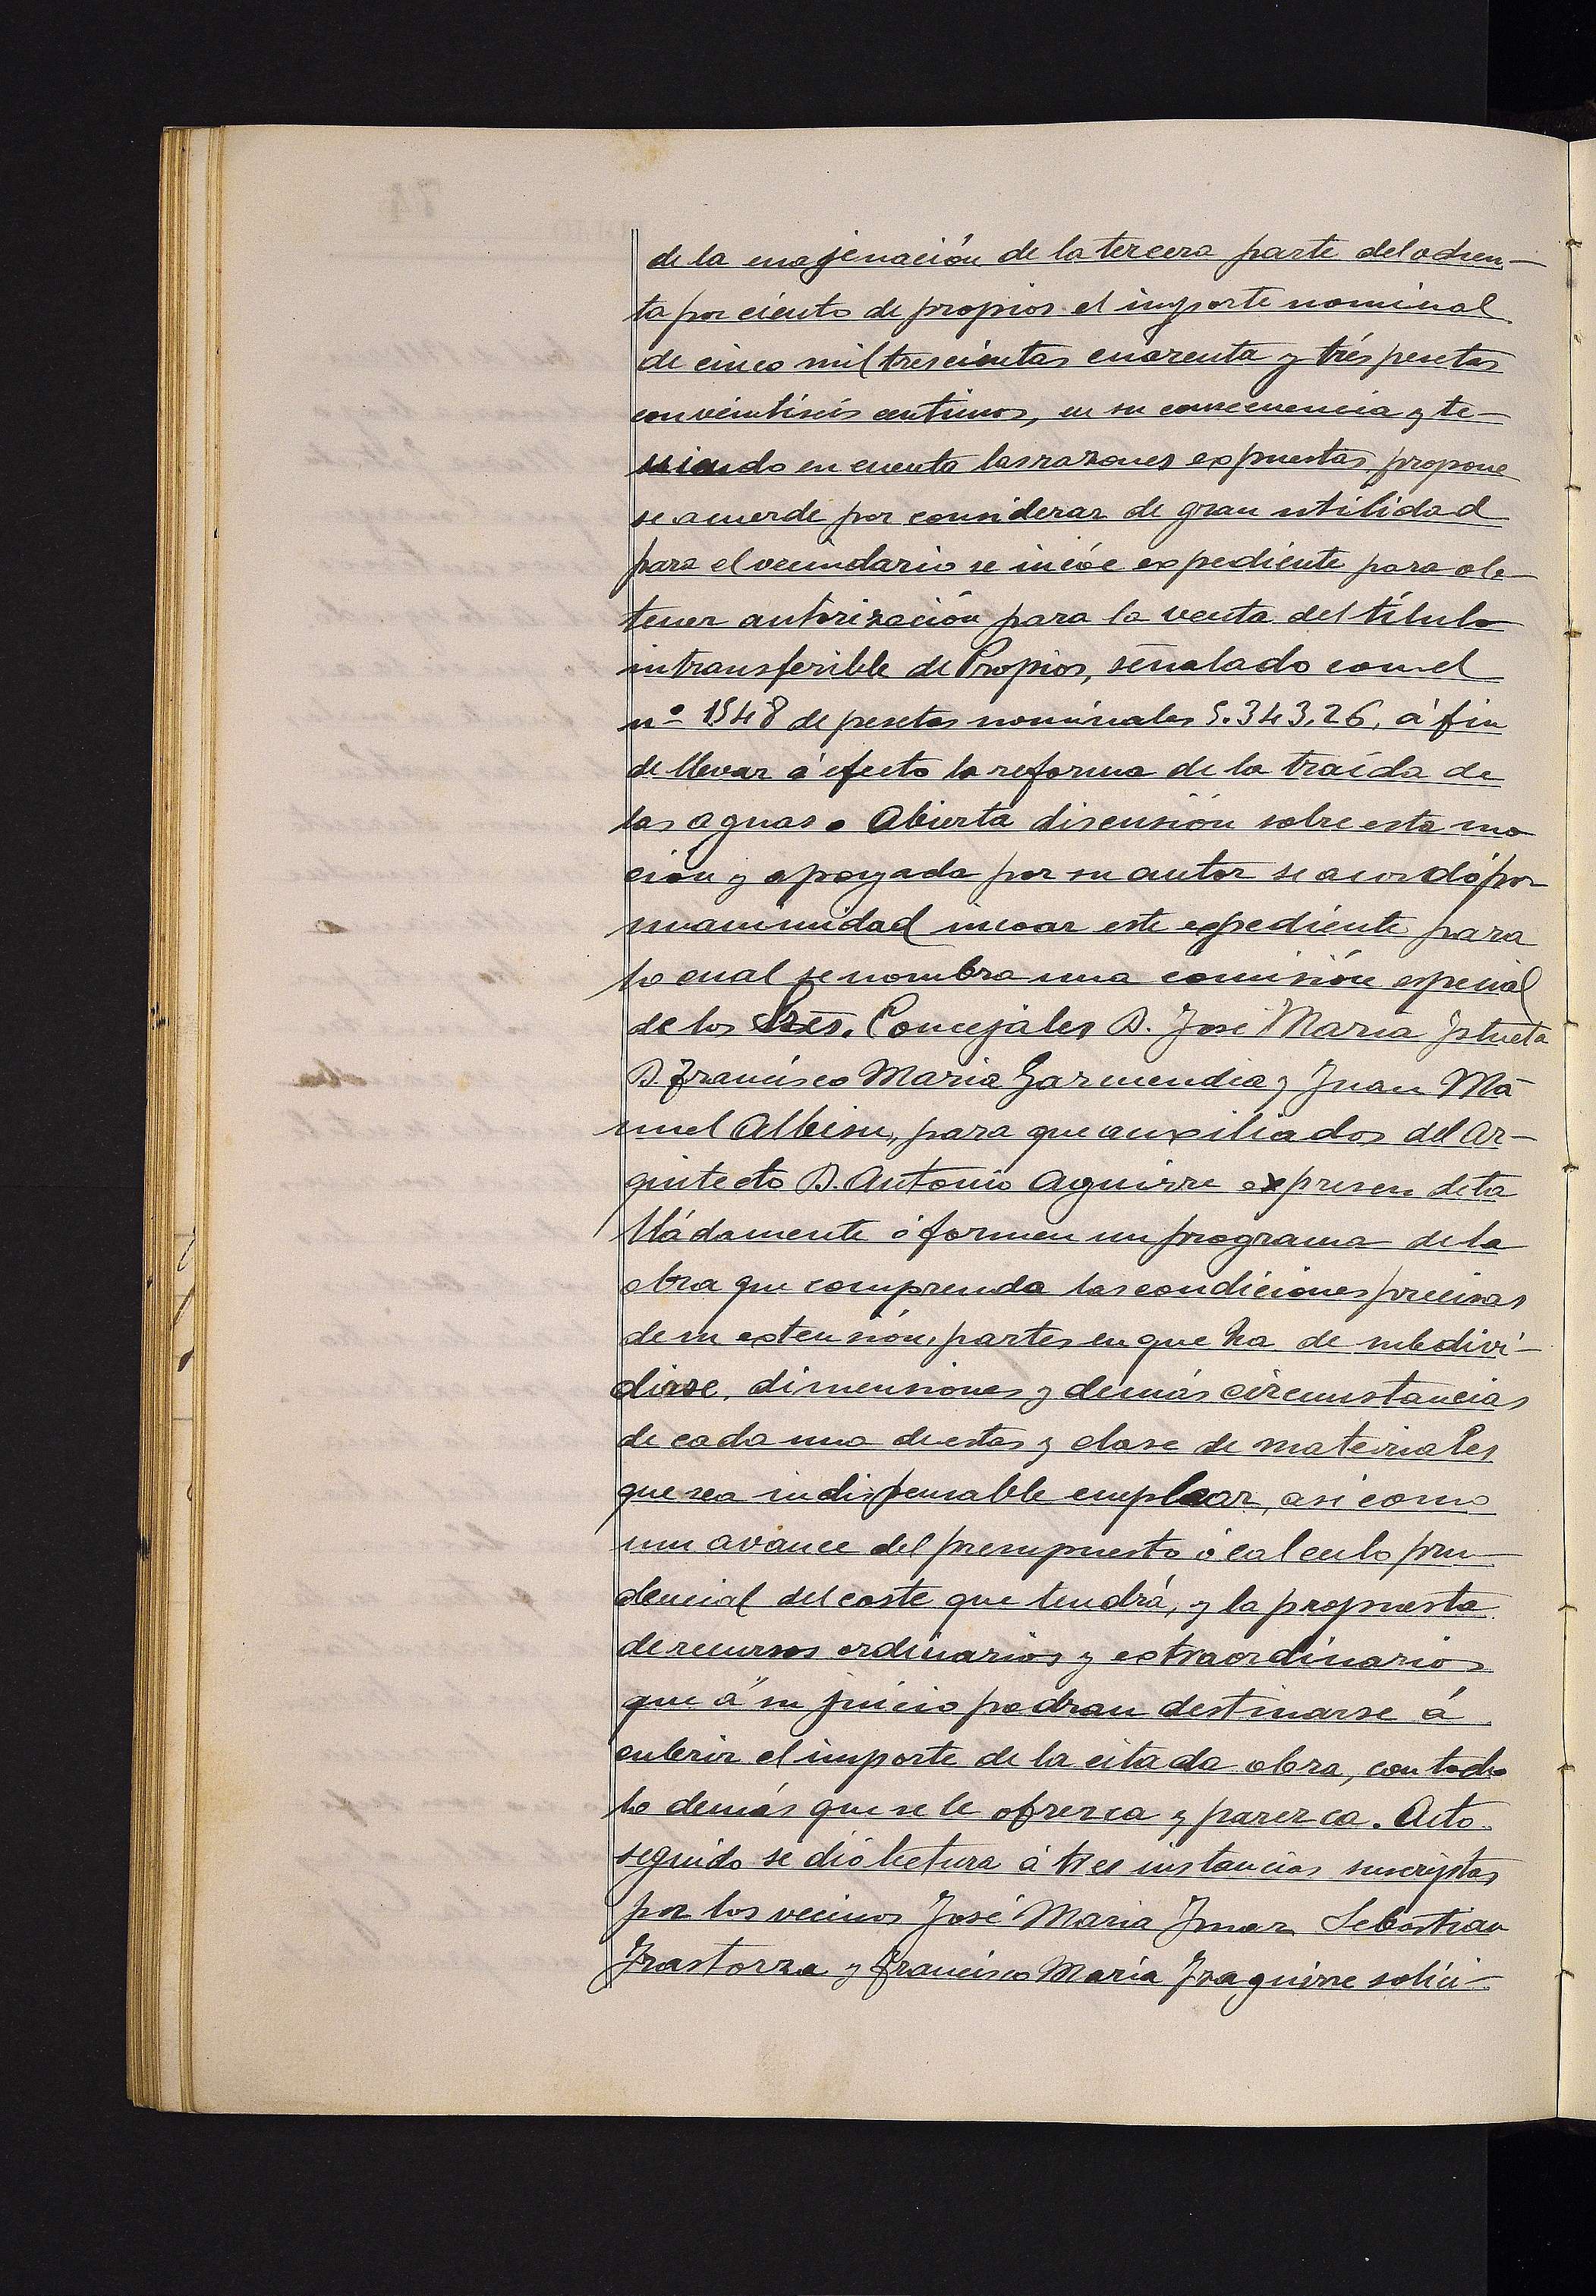 de la enajenación de la tercera parte del ochen-
ta por ciento de propios el importe nominal
de cinco mil trescientas cuarenta y trés pesetas
con veintiseis centimos, en su consecuencia y te-
niendo en cuenta las razones expuestas, propone
se acuerde por considerar de gran utilidad
para el vecindario se incóe expediente para ob-
tener autorización para la venta del título
intransferible de Propios, señalado con el
nº 1548 de pesetas nominales 5.343,26, á fin
de llevar á efecto la reforma de la traída de
las aguas. Abierta discusión sobre esta mo
ción y apoyada por su autor se acordó por
unanimidad incoar este expediente para
lo cual se nombra una comisión especial
de los Sres. Concejales D. José Maria Istueta
D. Francisco Maria Garmendia y Juan Ma
nuel Albisu, para que auxiliados del Ar-
quitecto D. Antonio Aguirre expresen deta
lládamente ó formen un programa de la
obra que comprenda las condiciones precisas
de su extensión, partes en que ha de subdivi-
dirse, dimensiones y demás circunstancias
de cada una de estas y clase de materiales
que sea indispensable emplear, asi como
un avance del presupuesto ó calculo pru-
dencial del coste que tendrá, y la propuesta
de recursos ordinarios y extraordinarios
que á su juicio podran destinarse á
cubrir el importe de la citada obra, con todo
lo demás que se le ofrezca y parezca. Acto
seguido se dió lectura á tres instancias suscriptas
por los vecinos José Maria Imaz Sebastian
Irastorza y Francisco Maria Izaguirre solici-